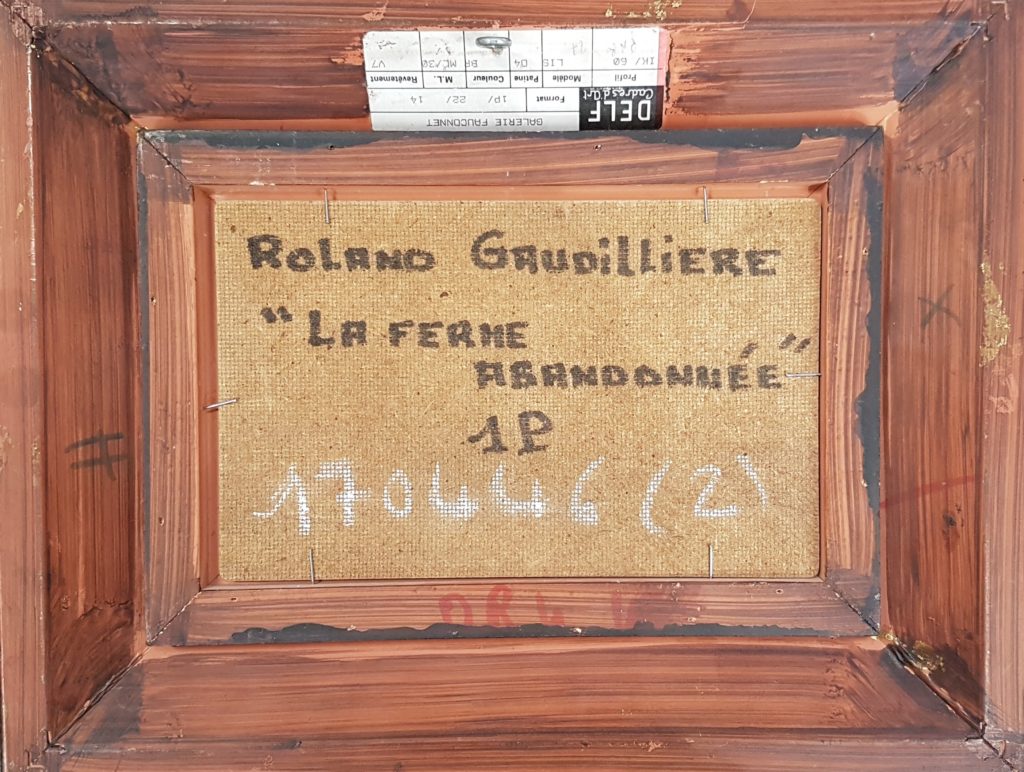 GALERIE FAUCONNET
DELF
Cadres d'Art
Format 1P/ 22/ 14
Profil Modèle Patine Couleur M.L. Revêtement
IK/ 60 LIS 04 V7
ROLAND GAUDILLIERE
"LA FERME
ABANDONNÉE"
1P
170446 (2)